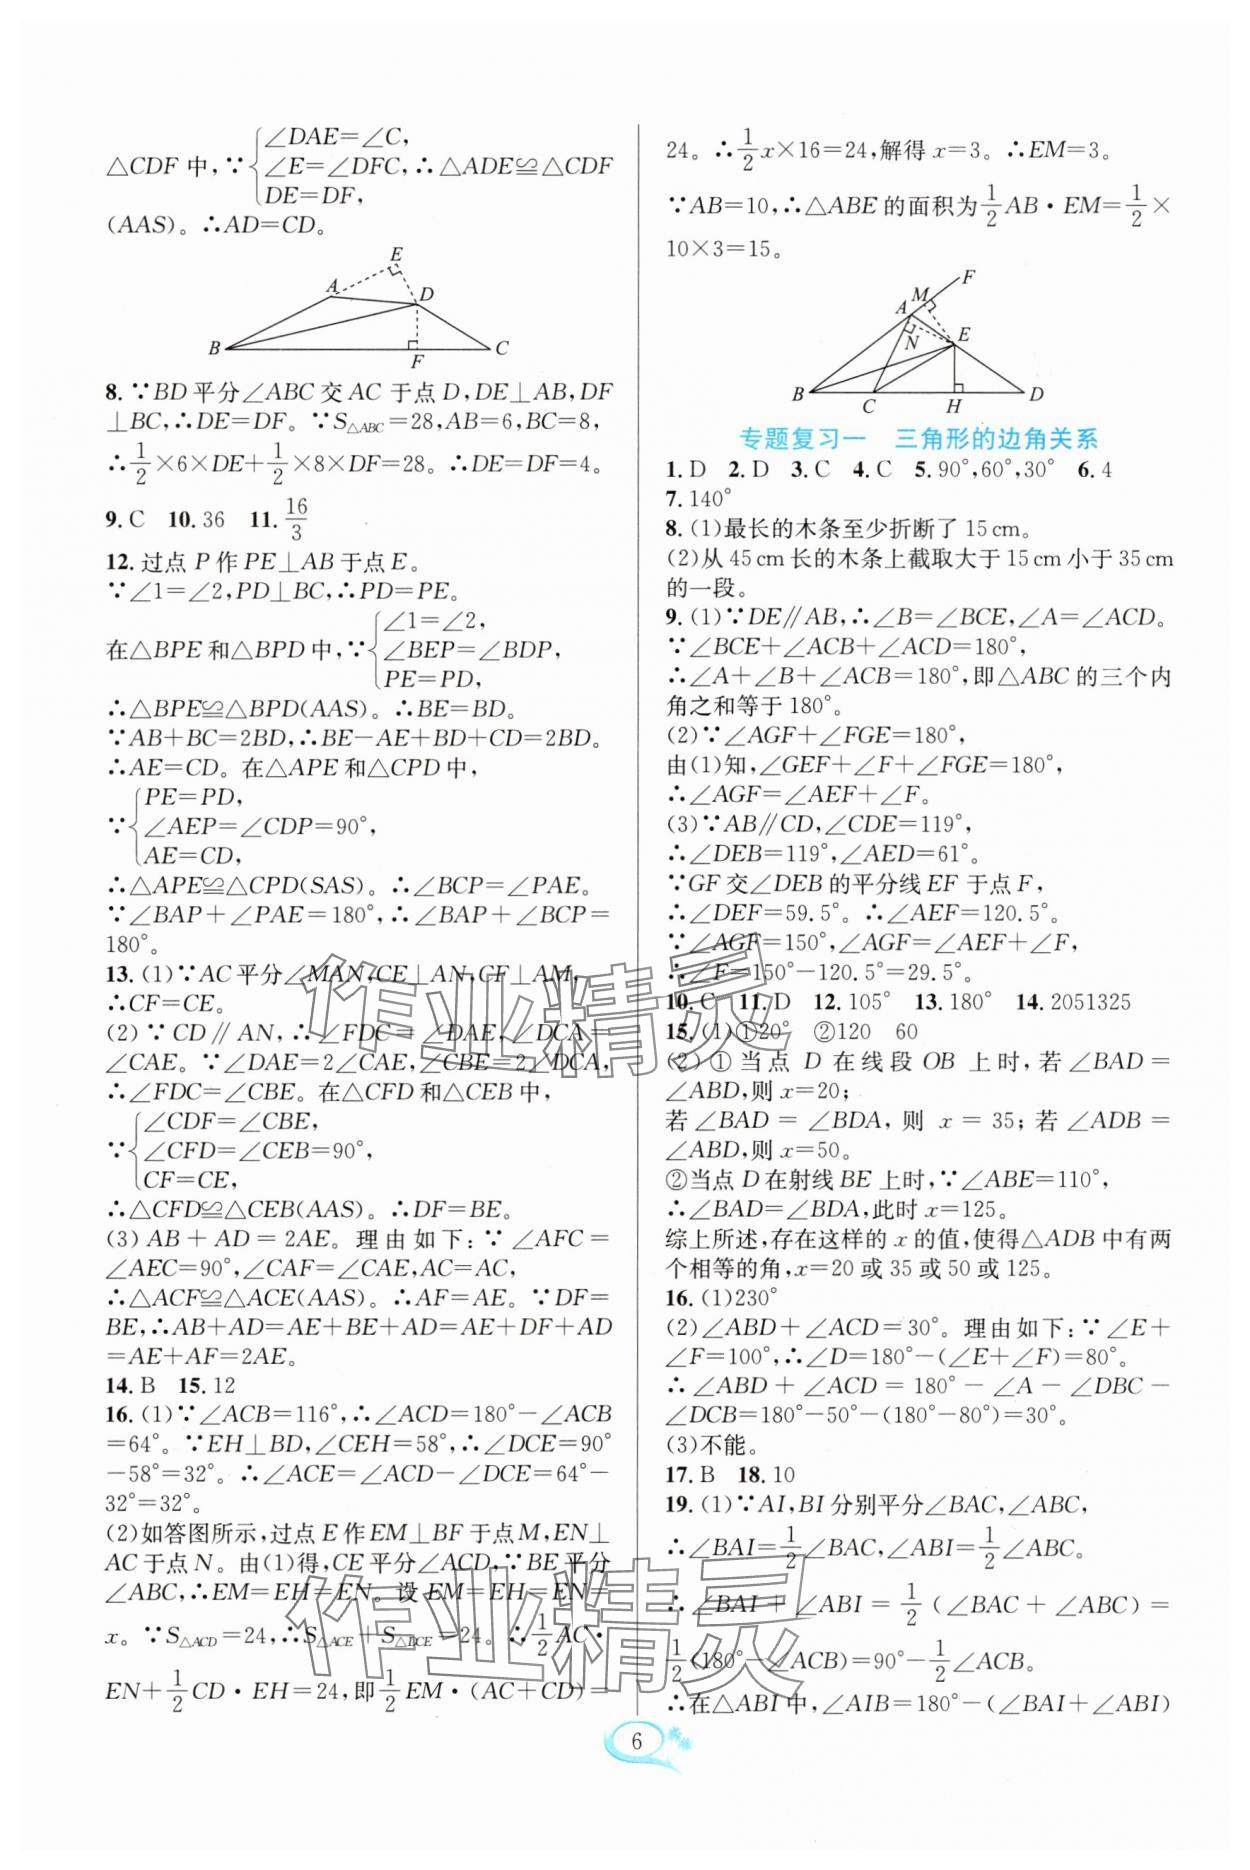 ∠DAE=∠C,
△CDF中,∵∠E=∠DFC,∴△ADE≌△CDF
DE=DF,
(AAS)。∴AD=CD。
E
A
D
B
F
C
8.∵BD平分∠ABC交AC于点D,DE⊥AB,DF
⊥BC,∴DE=DF。∵S△ABC=28,AB=6,BC=8,
∴1/2×6×DE+1/2×8×DF=28。∴DE=DF=4。
9.C 10.36 11.16/3
12.过点P作PE⊥AB于点E。
∵∠1=∠2,PD⊥BC,∴PD=PE。
∠1=∠2,
在△BPE和△BPD中,∵∠BEP=∠BDP,
PE=PD,
∴△BPE≌△BPD(AAS)。∴BE=BD。
∵AB+BC=2BD,∴BE-AE+BD+CD=2BD。
∴AE=CD。在△APE和△CPD中,
PE=PD,
∵∠AEP=∠CDP=90°,
AE=CD,
∴△APE≌△CPD(SAS)。∴∠BCP=∠PAE。
∵∠BAP+∠PAE=180°,∴∠BAP+∠BCP=
180°。
13.(1)∵AC平分∠MAN,CE⊥AN,CF⊥AM,
∴CF=CE。
(2)∵CD∥AN,∴∠FDC=∠DAE,∠DCA=
∠CAE。∵∠DAE=2∠CAE,∠CBE=2∠DCA,
∴∠FDC=∠CBE。在△CFD和△CEB中,
∠CDF=∠CBE,
∵∠CFD=∠CEB=90°,
CF=CE,
∴△CFD≌△CEB(AAS)。∴DF=BE。
(3)AB+AD=2AE。理由如下:∵∠AFC=
∠AEC=90°,∠CAF=∠CAE,AC=AC,
∴△ACF≌△ACE(AAS)。∴AF=AE。∵DF=
BE,∴AB+AD=AE+BE+AD=AE+DF+AD
=AE+AF=2AE。
14.B 15.12
16.(1)∵∠ACB=116°,∴∠ACD=180°-∠ACB
=64°。∵EH⊥BD,∠CEH=58°,∴∠DCE=90°
-58°=32°。∴∠ACE=∠ACD-∠DCE=64°-
32°=32°。
(2)如答图所示,过点E作EM⊥BF于点M,EN⊥
AC于点N。由(1)得,CE平分∠ACD,∵BE平分
∠ABC,∴EM=EH=EN。设EM=EH=EN=
x。∵S△ACD=24,∴S△ACE+S△DCE=24。∴1/2AC·
EN+1/2CD·EH=24,即1/2EM·(AC+CD)=
24。∴1/2x×16=24,解得x=3。∴EM=3。
∵AB=10,∴△ABE的面积为1/2AB·EM=1/2×
10×3=15。
F
M
A
N
E
B
C
H
D
专题复习一 三角形的边角关系
1.D 2.D 3.C 4.C 5.90°,60°,30° 6.4
7.140°
8.(1)最长的木条至少折断了15cm。
(2)从45cm长的木条上截取大于15cm小于35cm
的一段。
9.(1)∵DE∥AB,∴∠B=∠BCE,∠A=∠ACD。
∵∠BCE+∠ACB+∠ACD=180°,
∴∠A+∠B+∠ACB=180°,即△ABC的三个内
角之和等于180°。
(2)∵∠AGF+∠FGE=180°,
由(1)知,∠GEF+∠F+∠FGE=180°,
∴∠AGF=∠AEF+∠F。
(3)∵AB∥CD,∠CDE=119°,
∴∠DEB=119°,∠AED=61°。
∵GF交∠DEB的平分线EF于点F,
∴∠DEF=59.5°。∴∠AEF=120.5°。
∵∠AGF=150°,∠AGF=∠AEF+∠F,
∴∠F=150°-120.5°=29.5°。
10.C 11.D 12.105° 13.180° 14.2051325
15.(1)①20° ②120 60
(2)①当点D在线段OB上时,若∠BAD=
∠ABD,则x=20;
若∠BAD=∠BDA,则x=35;若∠ADB=
∠ABD,则x=50。
②当点D在射线BE上时,∵∠ABE=110°,
∴∠BAD=∠BDA,此时x=125。
综上所述,存在这样的x的值,使得△ADB中有两
个相等的角,x=20或35或50或125。
16.(1)230°
(2)∠ABD+∠ACD=30°。理由如下:∵∠E+
∠F=100°,∴∠D=180°-(∠E+∠F)=80°。
∴∠ABD+∠ACD=180°-∠A-∠DBC-
∠DCB=180°-50°-(180°-80°)=30°。
(3)不能。
17.B 18.10
19.(1)∵AI,BI分别平分∠BAC,∠ABC,
∴∠BAI=1/2∠BAC,∠ABI=1/2∠ABC。
∴∠BAI+∠ABI=1/2(∠BAC+∠ABC)=
1/2(180°-∠ACB)=90°-1/2∠ACB。
∴在△ABI中,∠AIB=180°-(∠BAI+∠ABI)
6
作业精灵
作业精灵